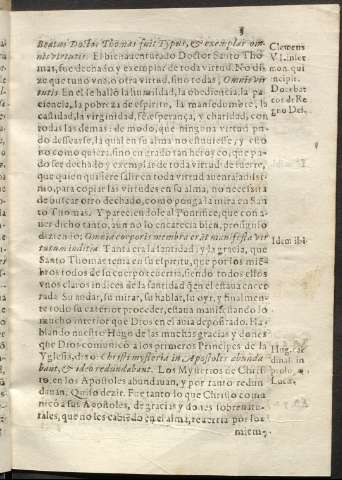 Beatus Doctor Thomas fuit Typus, & exemplar om-
nis virtutis. El bienauenturado Doctor Santo Tho-
mas, fue dechado y exemplar de toda virtud. No di-
ze que tuuo vna, o otra virtud, sino todas, Omnis vir
tutis. En el se hallò la humildad, la obediencia, la pa-
ciencia, la pobreza de espiritu, la mansedumbre, la
castidad, la virginidad, fè, esperança, y charidad, con
todas las demas: de modo, que ninguna virtud pu-
do dessearse, la qual en su alma no estuuiesse, y esto
no como quiera, sino en grado tan heroyco, que pu-
do ser dechado y exemplar de toda virtud: de suerte,
que quien quisiere salir en toda virtud auentajadissi-
mo, para copiar las virtudes en su alma, no necessita
de buscar otro dechado, como ponga la mira en San
to Thomas. Y pareciendole al Pontifice, que con a-
uer dicho tanto, aun no lo encarecia bien, prosiguio
diziendo: Omnia corporis membra erãt manifesta vir
tutum inditia. Tanta era la santidad, y la gracia, que
Santo Thomas tenia en su espiritu, que por los miẽ-
bros todos de su cuerpo vertia, siendo todos ellos
vnos claros indices de la santidad q̃ en el estaua ence
rrada. Su andar, su mirar, su hablar, su oyr, y finalmen
te todo su exterior proceder, estaua manifestando lo
mucho interior que Dios en el auia depositado. Ha-
blando nuestro Hugo de las muchas gracias y dones
que Dios comunicò a los primeros Principes de la
Yglesia, dixo: Christi mysteria in Apostolis abunda
bant, & ideo redundabant. Los Mysterios de Chris-
to en los Apostoles abundauan, y por tanto redun-
dauan. Quiso dezir. Fue tanto lo que Christo comu-
nicò a sus Apostoles, de gracias y dones sobrenatu-
rales, que no les cabiẽdo en el alma, revertia por los
miem-
Clemens
V I. inter
mon. qui
incipit.
Do. abat
cos de Re
gno Dei.
Idem ibi.
Hug. car
dinal. in
prolo.
Luca.